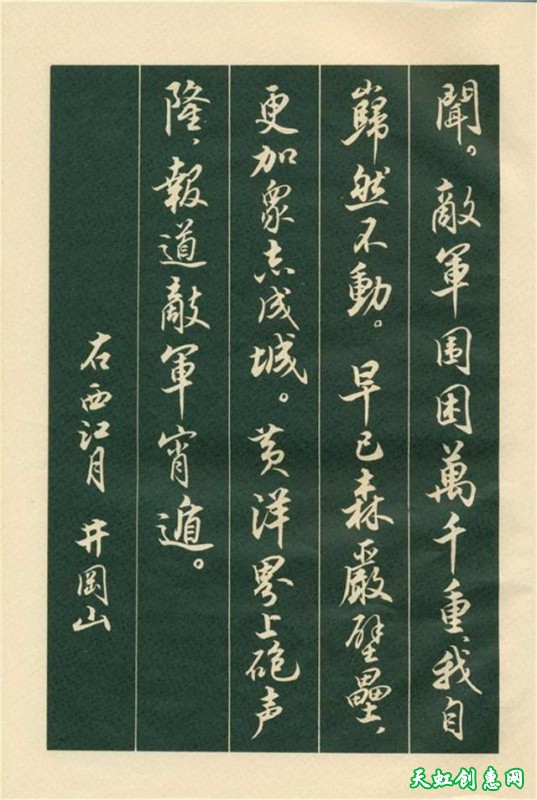 聞。敵軍围困萬千重、我自
巋然不動。早已森嚴壁壘、
更加衆志成城。黄洋界上砲声
隆、報道敵軍宵遁。
右西江月 井岡山
天虹创惠网